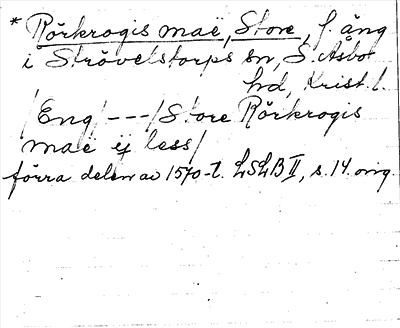 * Rörkrogis maë, Store, f. äng
i Strövelstorps sn, S. Åsbo
hd, Krist. l.
/Eng/ --- /Store Rörkrogis
maë ij less/
förra delen av 1570-t. LSLB II, s. 14. orig.